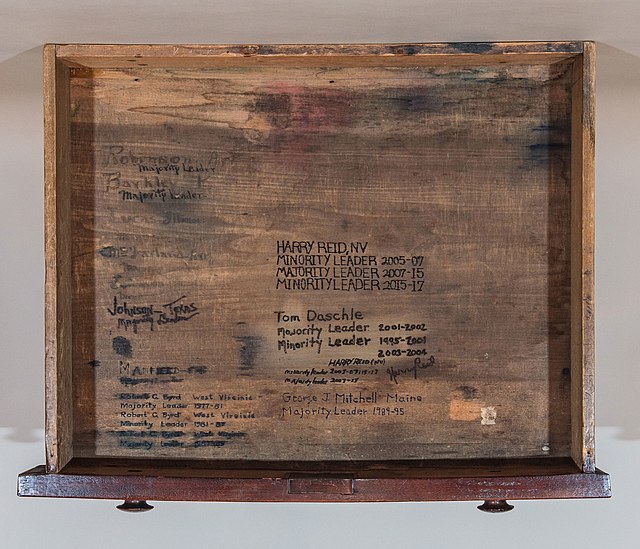 Robinson Ark
Majority Leader
Barkley
Majority Leader
Lucas
McFarland
Johnson – Texas
Majority Leader
Mansfield
Robert C. Byrd West Virginia
Majority Leader 1977-81
Robert C. Byrd West Virginia
Minority Leader 1981-87
Robert C. Byrd West Virginia
Majority Leader
HARRY REID, NV
MINORITY LEADER 2005-07
MAJORITY LEADER 2007-15
MINORITY LEADER 2015-17
Tom Daschle
Majority Leader 2001-2002
Minority Leader 1995-2001
2003-2004
HARRY REID (NV)
minority leader 2005-07; 15-17
majority leader 2007-15
Harry Reid
George J. Mitchell Maine
Majority Leader 1989-95